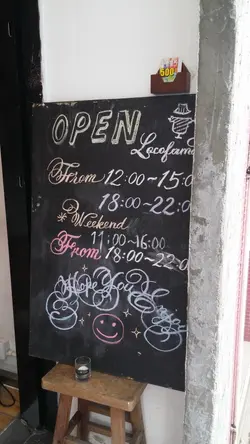 OPEN
Locofama
From 12:00~15:0
18:00~22:0
*Weekend
11:00~16:00
From 18:00~22:0
Hope You